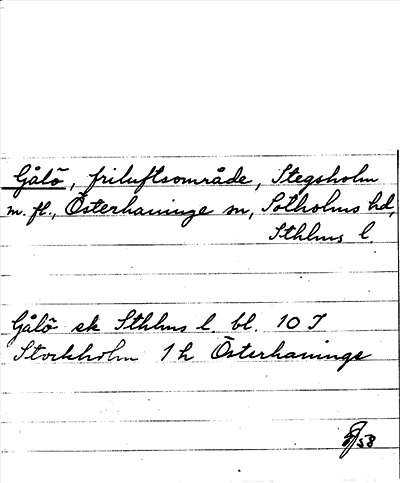 Gålö, friluftsområde, Stegsholm
m. fl., Österhaninge sn, Sotholms hd,
Sthlms l.
Gålö ek Sthlms l. bl. 10 I
Stockholm 1 h Österhaninge
/58